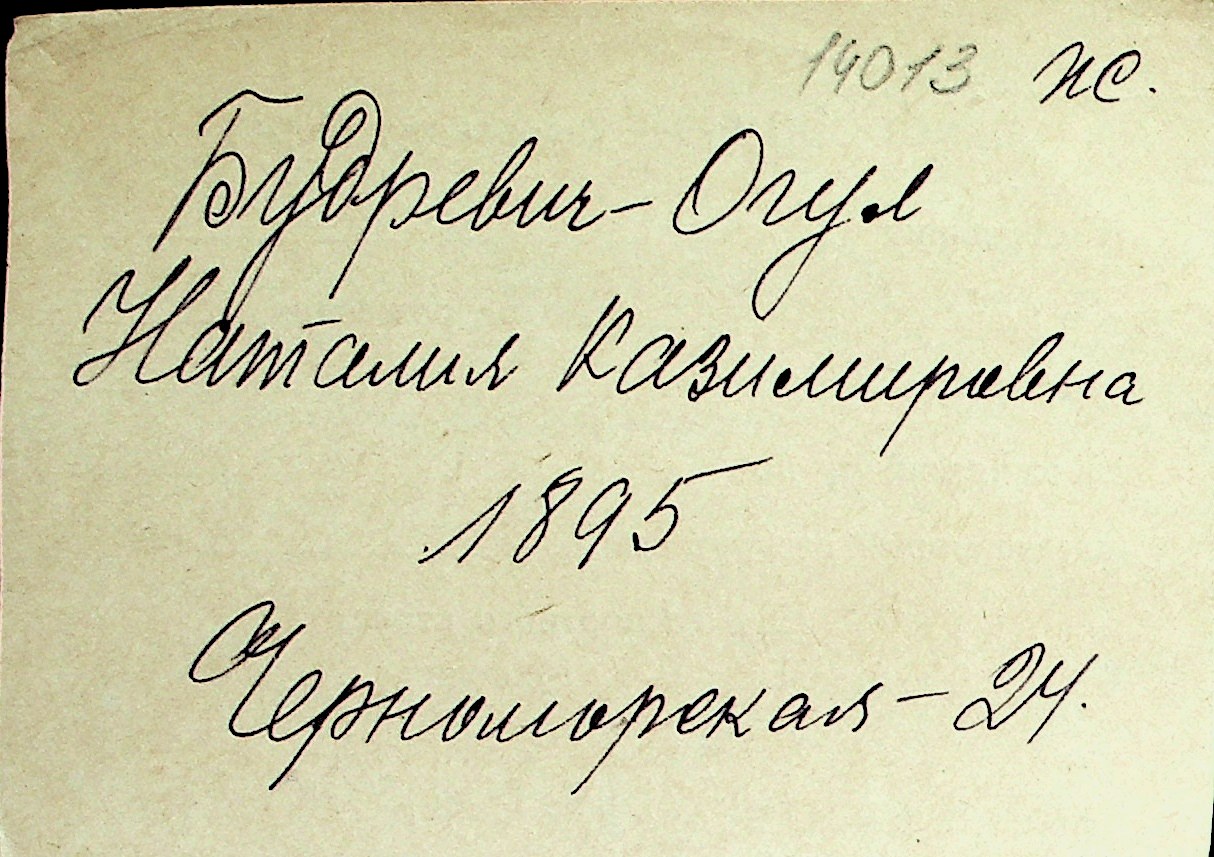 14013 пс.
Будревич-Огул
Наталия Казимировна
1895
Черноморская-24.